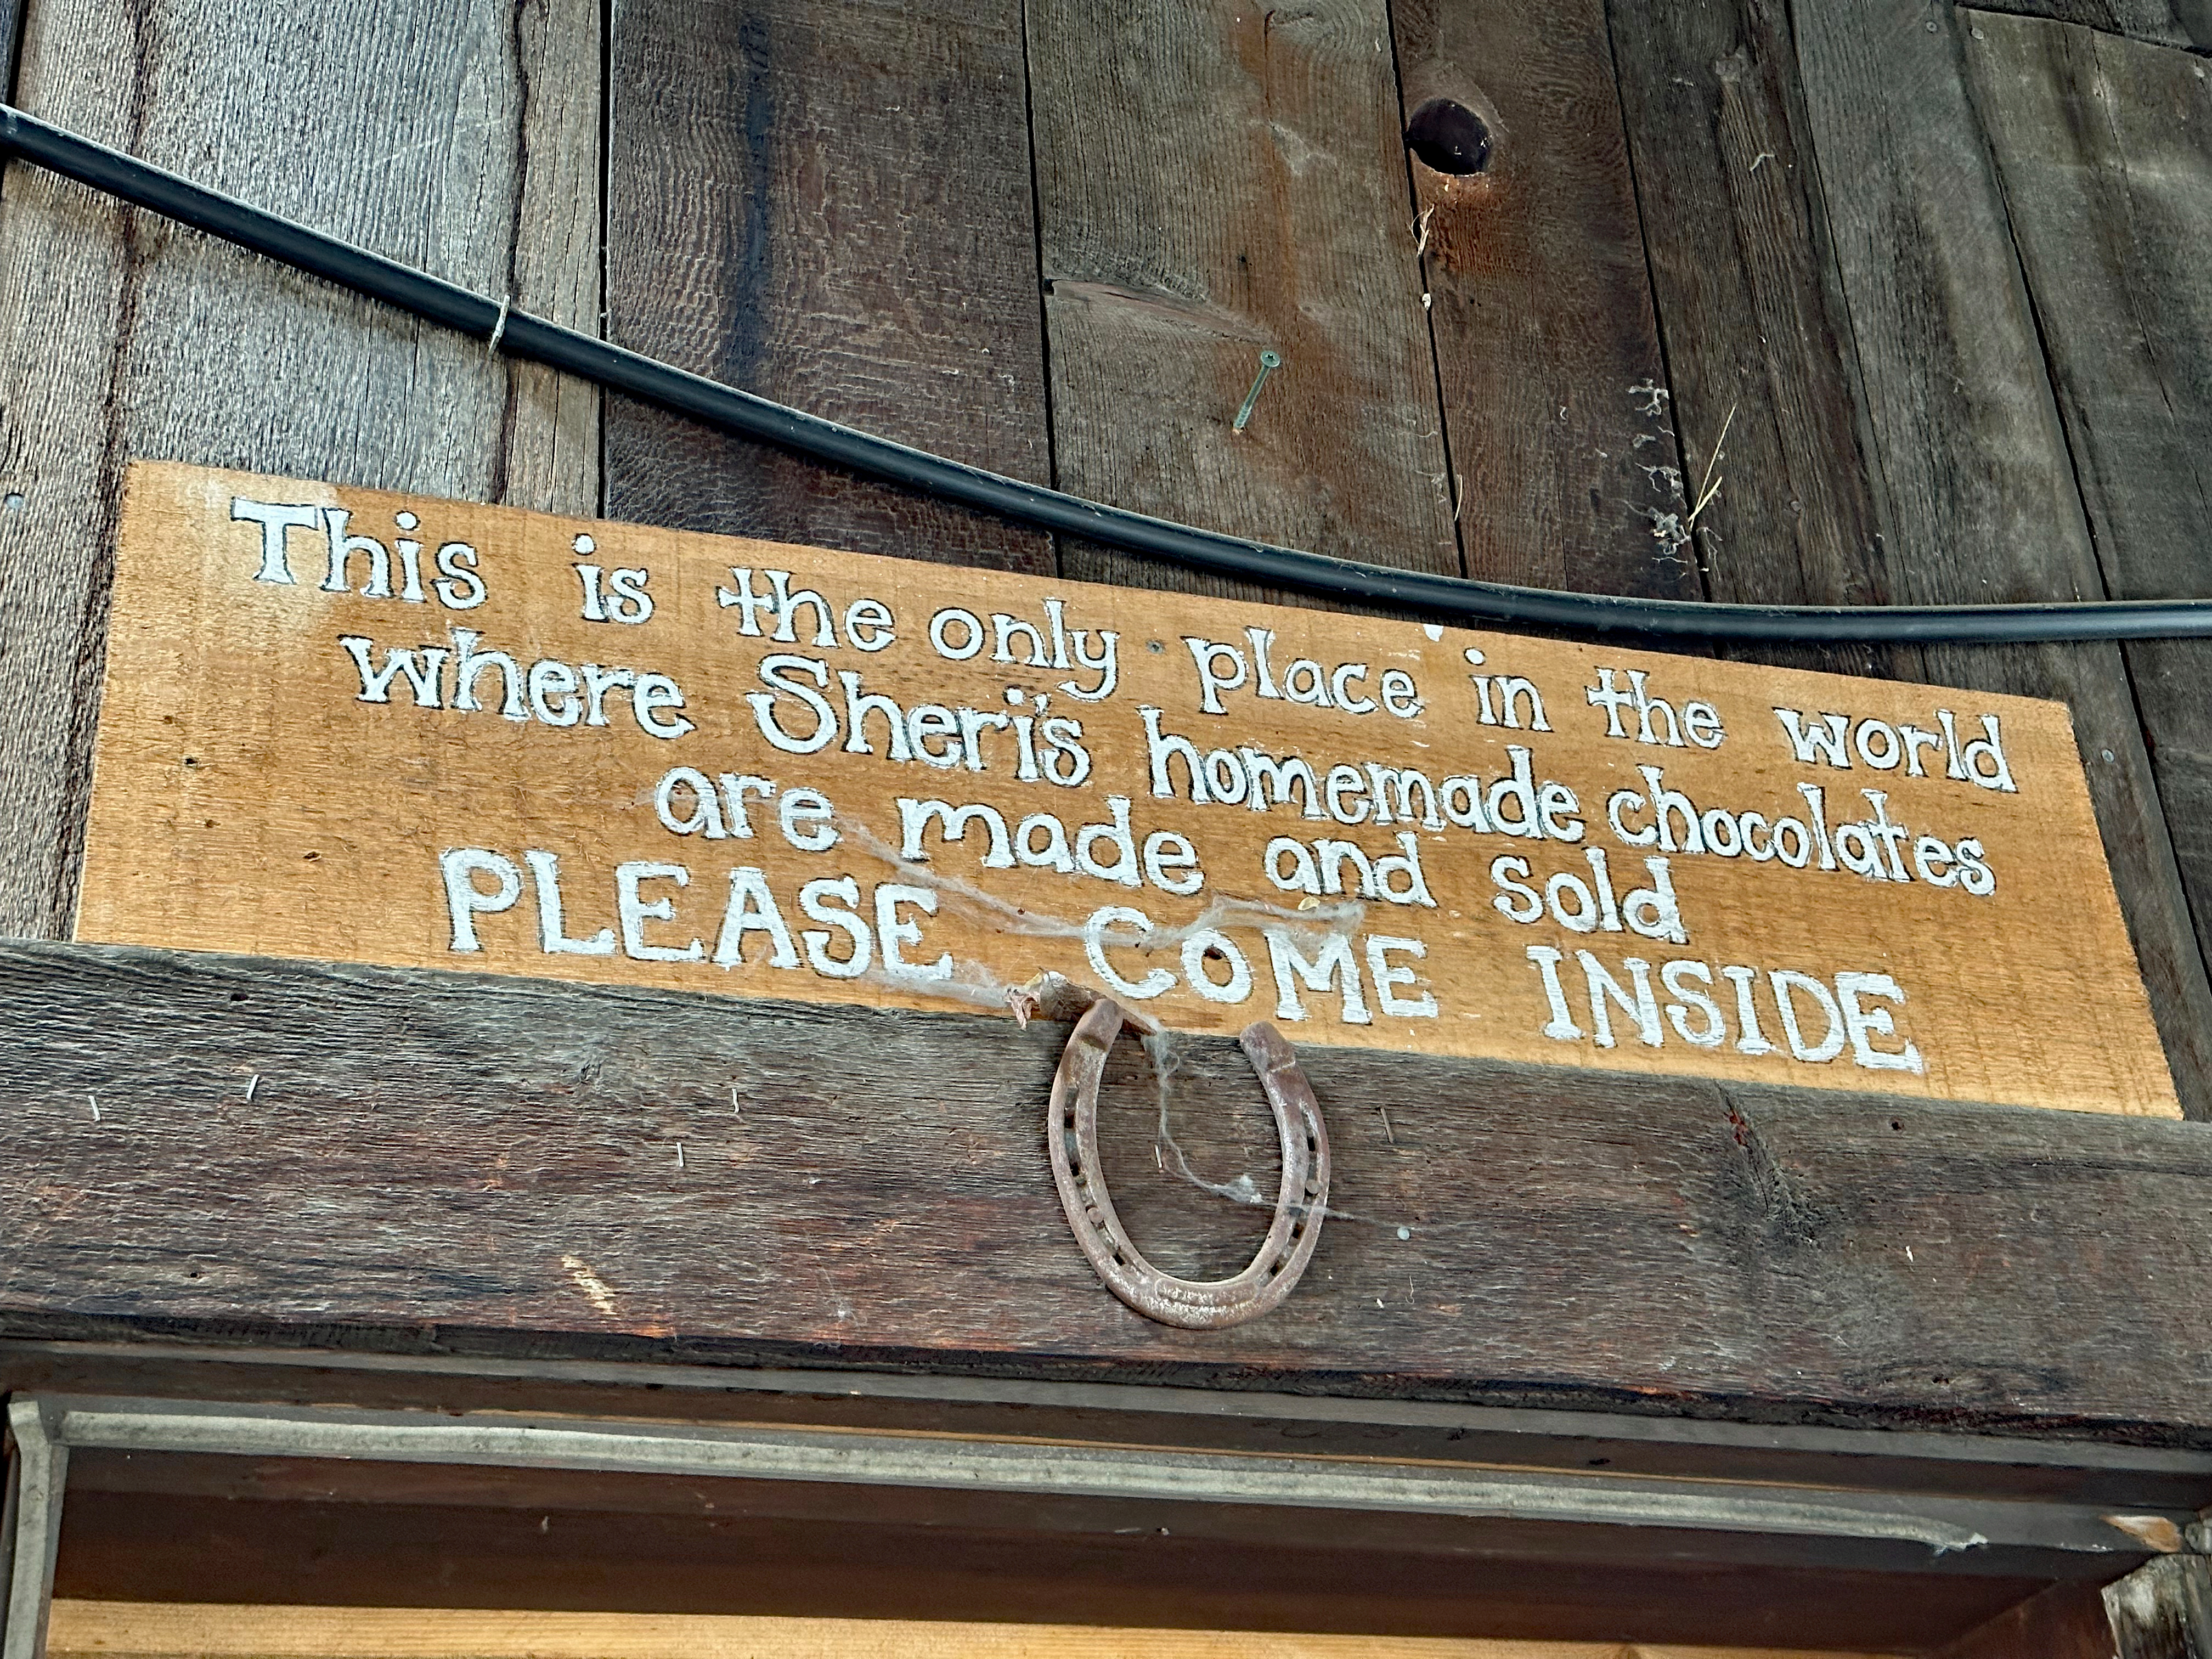 This is the only place in the world
where Sheri's homemade chocolates
are made and sold
PLEASE COME INSIDE